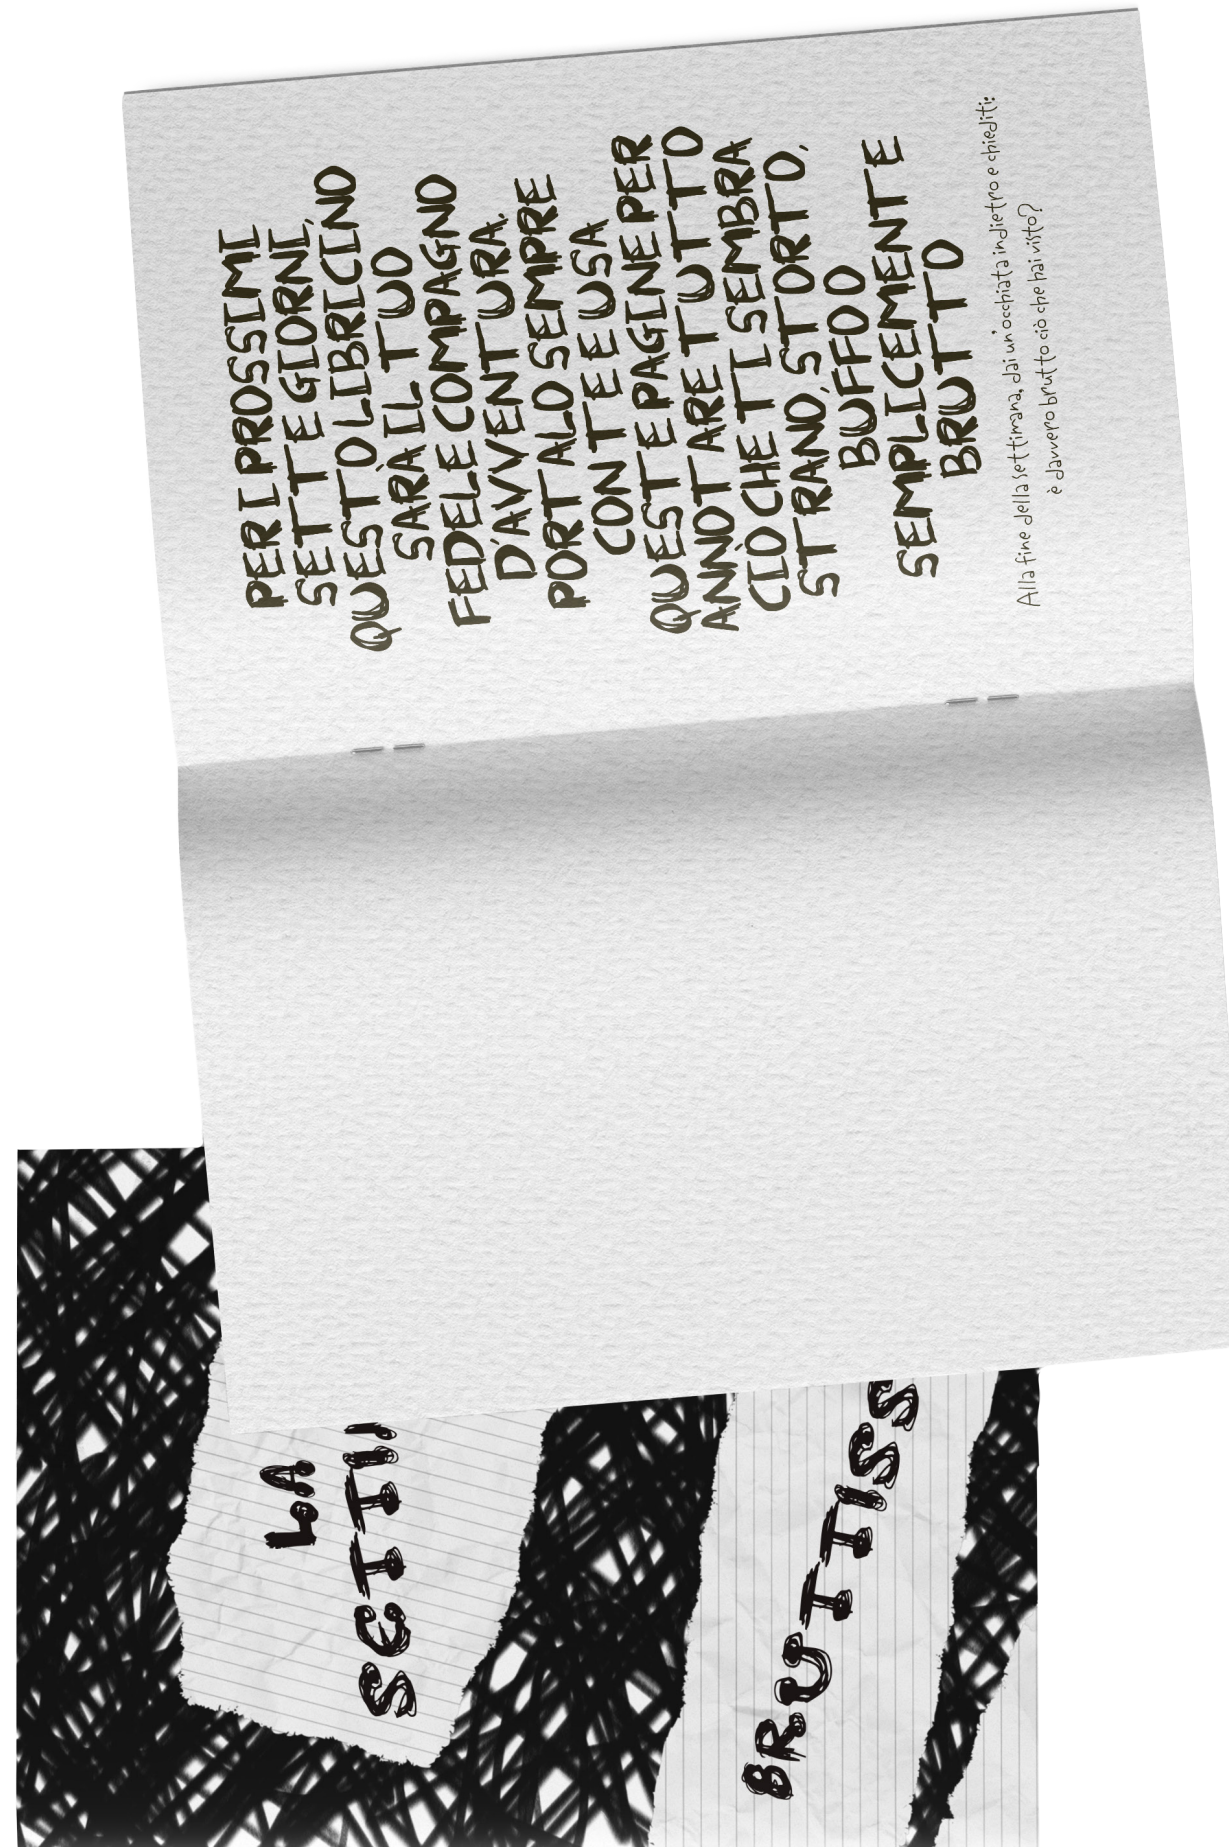 PER I PROSSIMI
SETTE GIORNI,
QUESTO LIBRICINO
SARÀ IL TUO
FEDELE COMPAGNO
D'AVVENTURA.
PORTALO SEMPRE
CON TE E USA
QUESTE PAGINE PER
ANNOTARE TUTTO
CIÒ CHE TI SEMBRA
STRANO, STORTO,
BUFFO O
SEMPLICEMENTE
BRUTTO
Alla fine della settimana, dai un'occhiata indietro e chiediti:
è davvero brutto ciò che hai visto?
LA
SETTI
BRUTTISS